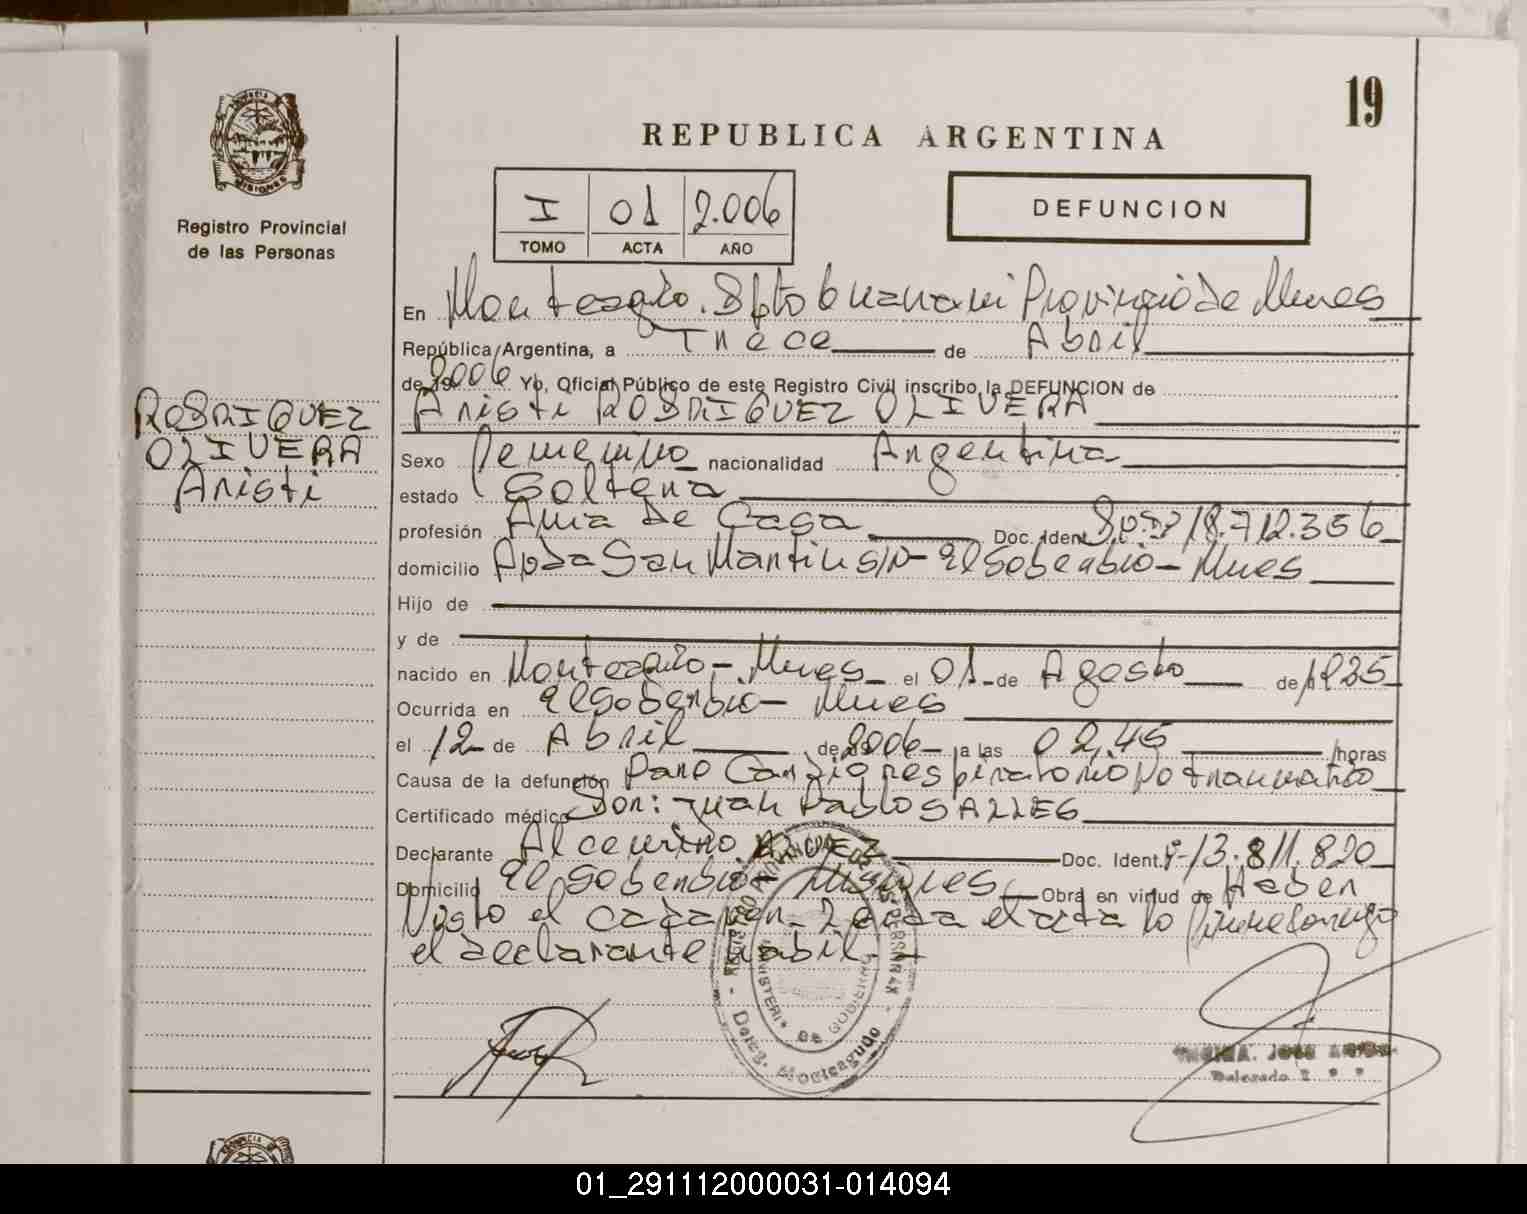 19
REPUBLICA ARGENTINA
PROVINCIA DE MISIONES
Registro Provincial
de las Personas
I 01 2.006
TOMO ACTA AÑO
DEFUNCION
En Monteagudo. Dpto Guarani Provincia de Mnes
República Argentina, a Trece de Abril
de 2006 Yo, Oficial Público de este Registro Civil inscribo la DEFUNCION de
Aristi RODRIGUEZ OLIVERA
RODRIGUEZ
OLIVERA
Aristi
Sexo Femenino nacionalidad Argentina
estado Soltera
profesión Ama de Casa Doc. Ident. 18.712.356
domicilio Avda San Martin S/N- El Soberbio- Mnes
Hijo de
y de
nacido en Monteagudo- Mnes el 01 de Agosto de 1935
Ocurrida en El Soberbio- Mnes
el 12 de Abril de 2006 a las 02,45 horas
Causa de la defunción Paro Cardiorespiratorio No traumatico
Certificado médico Dor: Juan Pablo SALLES
Declarante Alcemino Doc. Ident. 13.811.820
Domicilio El Soberbio- Misiones Obra en virtud de Haber
Visto el cadaver- Leida el acta lo firma conmigo
el declarante habil.
MINISTERIO DE GOBIERNO
Deleg. Monteagudo
JOSE
Delegado
01_291112000031-014094